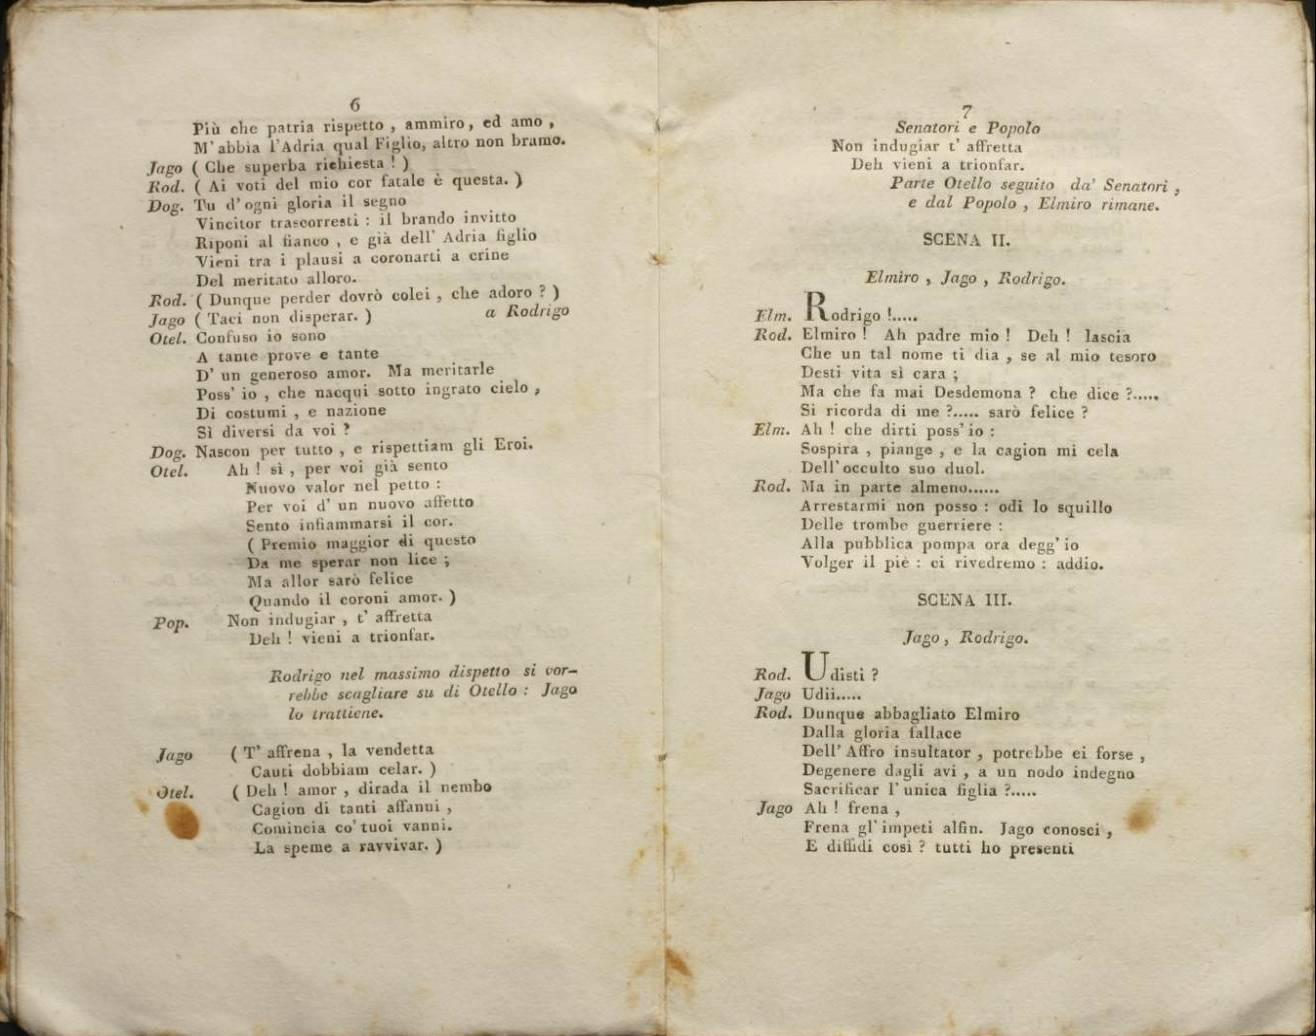 6
Più che patria rispetto , ammiro, ed amo ,
M' abbia l'Adria qual Figlio, altro non bramo.
Jago ( Che superba richiesta ! )
Rod. ( Ai voti del mio cor fatale è questa. )
Dog. Tu d' ogni gloria il segno
Vincitor trascorresti : il brando invitto
Riponi al fianco , e già dell' Adria figlio
Vieni tra i plausi a coronarti a crine
Del meritato alloro.
Rod. ( Dunque perder dovrò colei , che adoro ? )
Jago ( Taci non disperar. ) a Rodrigo
Otel. Confuso io sono
A tante prove e tante
D' un generoso amor. Ma meritarle
Poss' io , che nacqui sotto ingrato cielo ,
Di costumi , e nazione
Sì diversi da voi ?
Dog. Nascon per tutto , e rispettiam gli Eroi.
Otel. Ah ! sì , per voi già sento
Nuovo valor nel petto :
Per voi d' un nuovo affetto
Sento infiammarsi il cor.
( Premio maggior di questo
Da me sperar non lice ;
Ma allor sarò felice
Quando il coroni amor. )
Pop. Non indugiar , t' affretta
Deh ! vieni a trionfar.
Rodrigo nel massimo dispetto si vor-
rebbe scagliare su di Otello : Jago
lo trattiene.
Jago ( T' affrena , la vendetta
Cauti dobbiam celar. )
Otel. ( Deh ! amor , dirada il nembo
Cagion di tanti affanni ,
Comincia co' tuoi vanni.
La speme a ravvivar. )
7
Senatori e Popolo
Non indugiar t' affretta
Deh vieni a trionfar.
Parte Otello seguito da' Senatori ,
e dal Popolo , Elmiro rimane.
SCENA II.
Elmiro , Jago , Rodrigo.
Elm. Rodrigo !.....
Rod. Elmiro ! Ah padre mio ! Deh ! lascia
Che un tal nome ti dia , se al mio tesoro
Desti vita sì cara ;
Ma che fa mai Desdemona ? che dice ?.....
Si ricorda di me ?..... sarò felice ?
Elm. Ah ! che dirti poss' io :
Sospira , piange , e la cagion mi cela
Dell' occulto suo duol.
Rod. Ma in parte almeno......
Arrestarmi non posso : odi lo squillo
Delle trombe guerriere :
Alla pubblica pompa ora degg' io
Volger il piè : ci rivedremo : addio.
SCENA III.
Jago, Rodrigo.
Rod. Udisti ?
Jago Udii.....
Rod. Dunque abbagliato Elmiro
Dalla gloria fallace
Dell' Affro insultator , potrebbe ei forse ,
Degenere dagli avi , a un nodo indegno
Sacrificar l' unica figlia ?.....
Jago Ah ! frena ,
Frena gl' impeti alfin. Jago conosci ,
E diffidi così ? tutti ho presenti